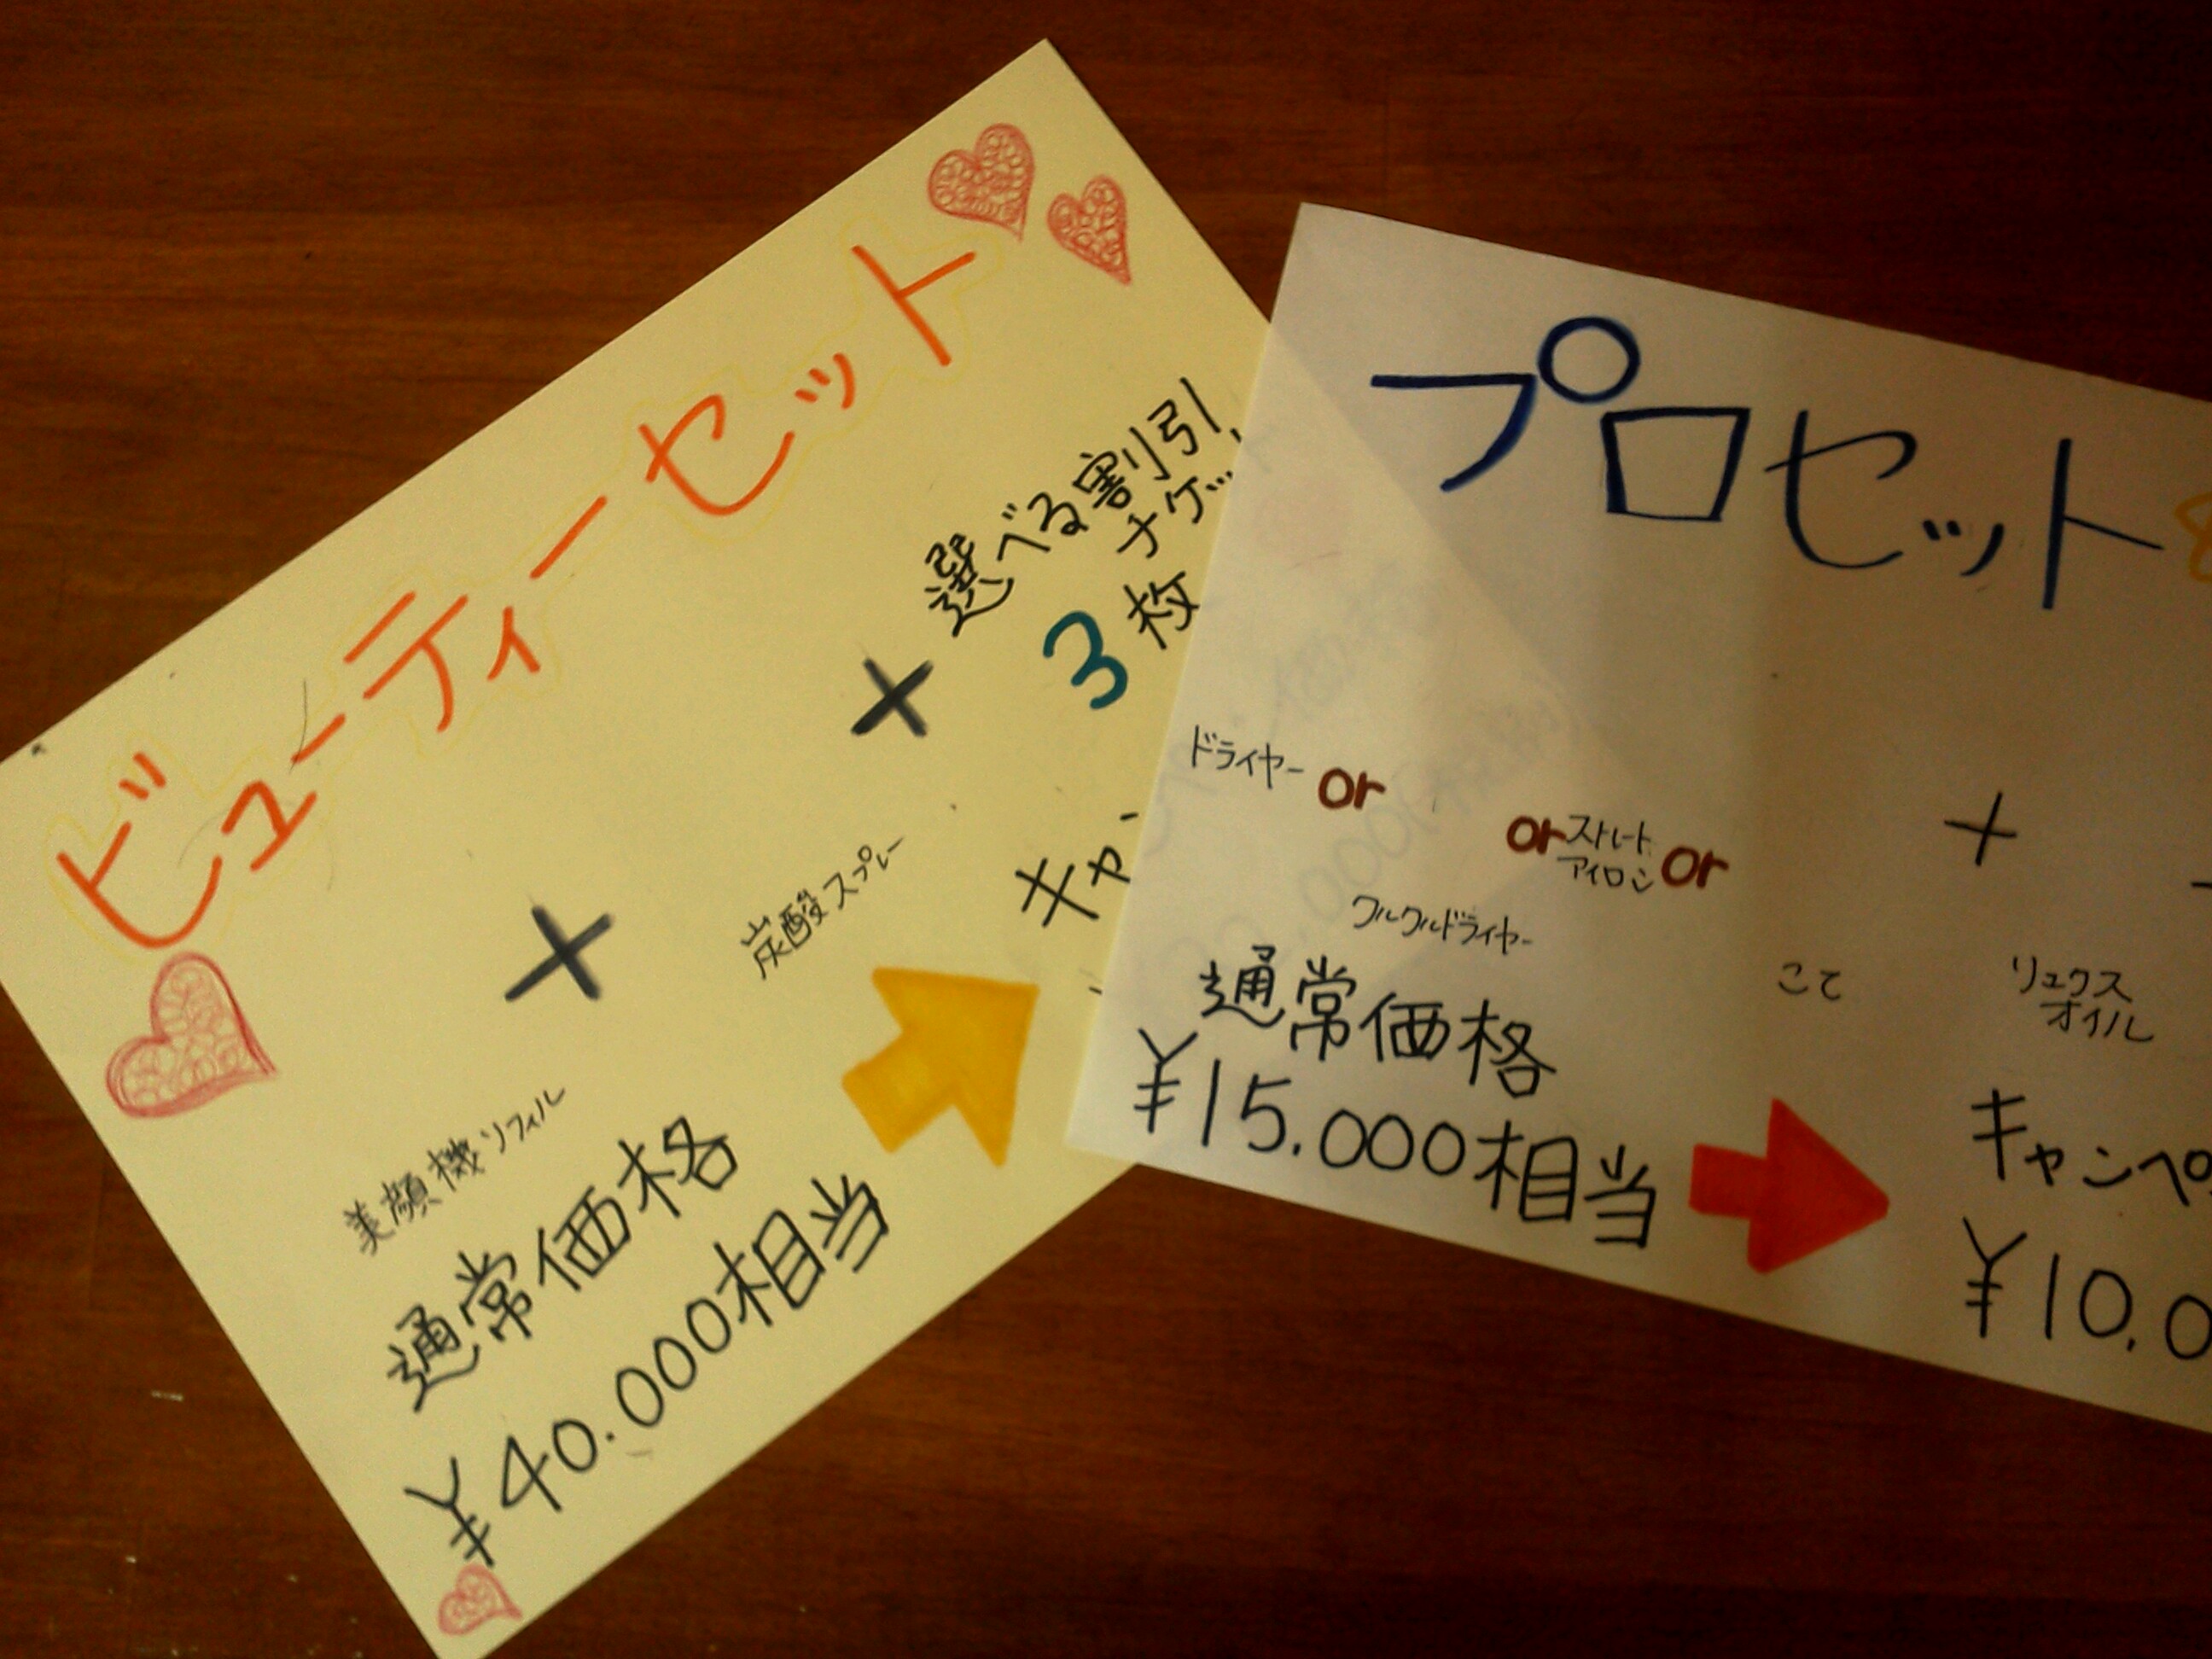 ビューティーセット
選べる割引
チケッ
3枚
炭酸スプレー
キャ
美顔機リフィル
通常価格
¥40.000相当
プロセット
ドライヤー or
or ストレート
アイロン or
クルクルドライヤー
こて
リュクス
オイル
通常価格
¥15.000相当
キャンペ
¥10.0